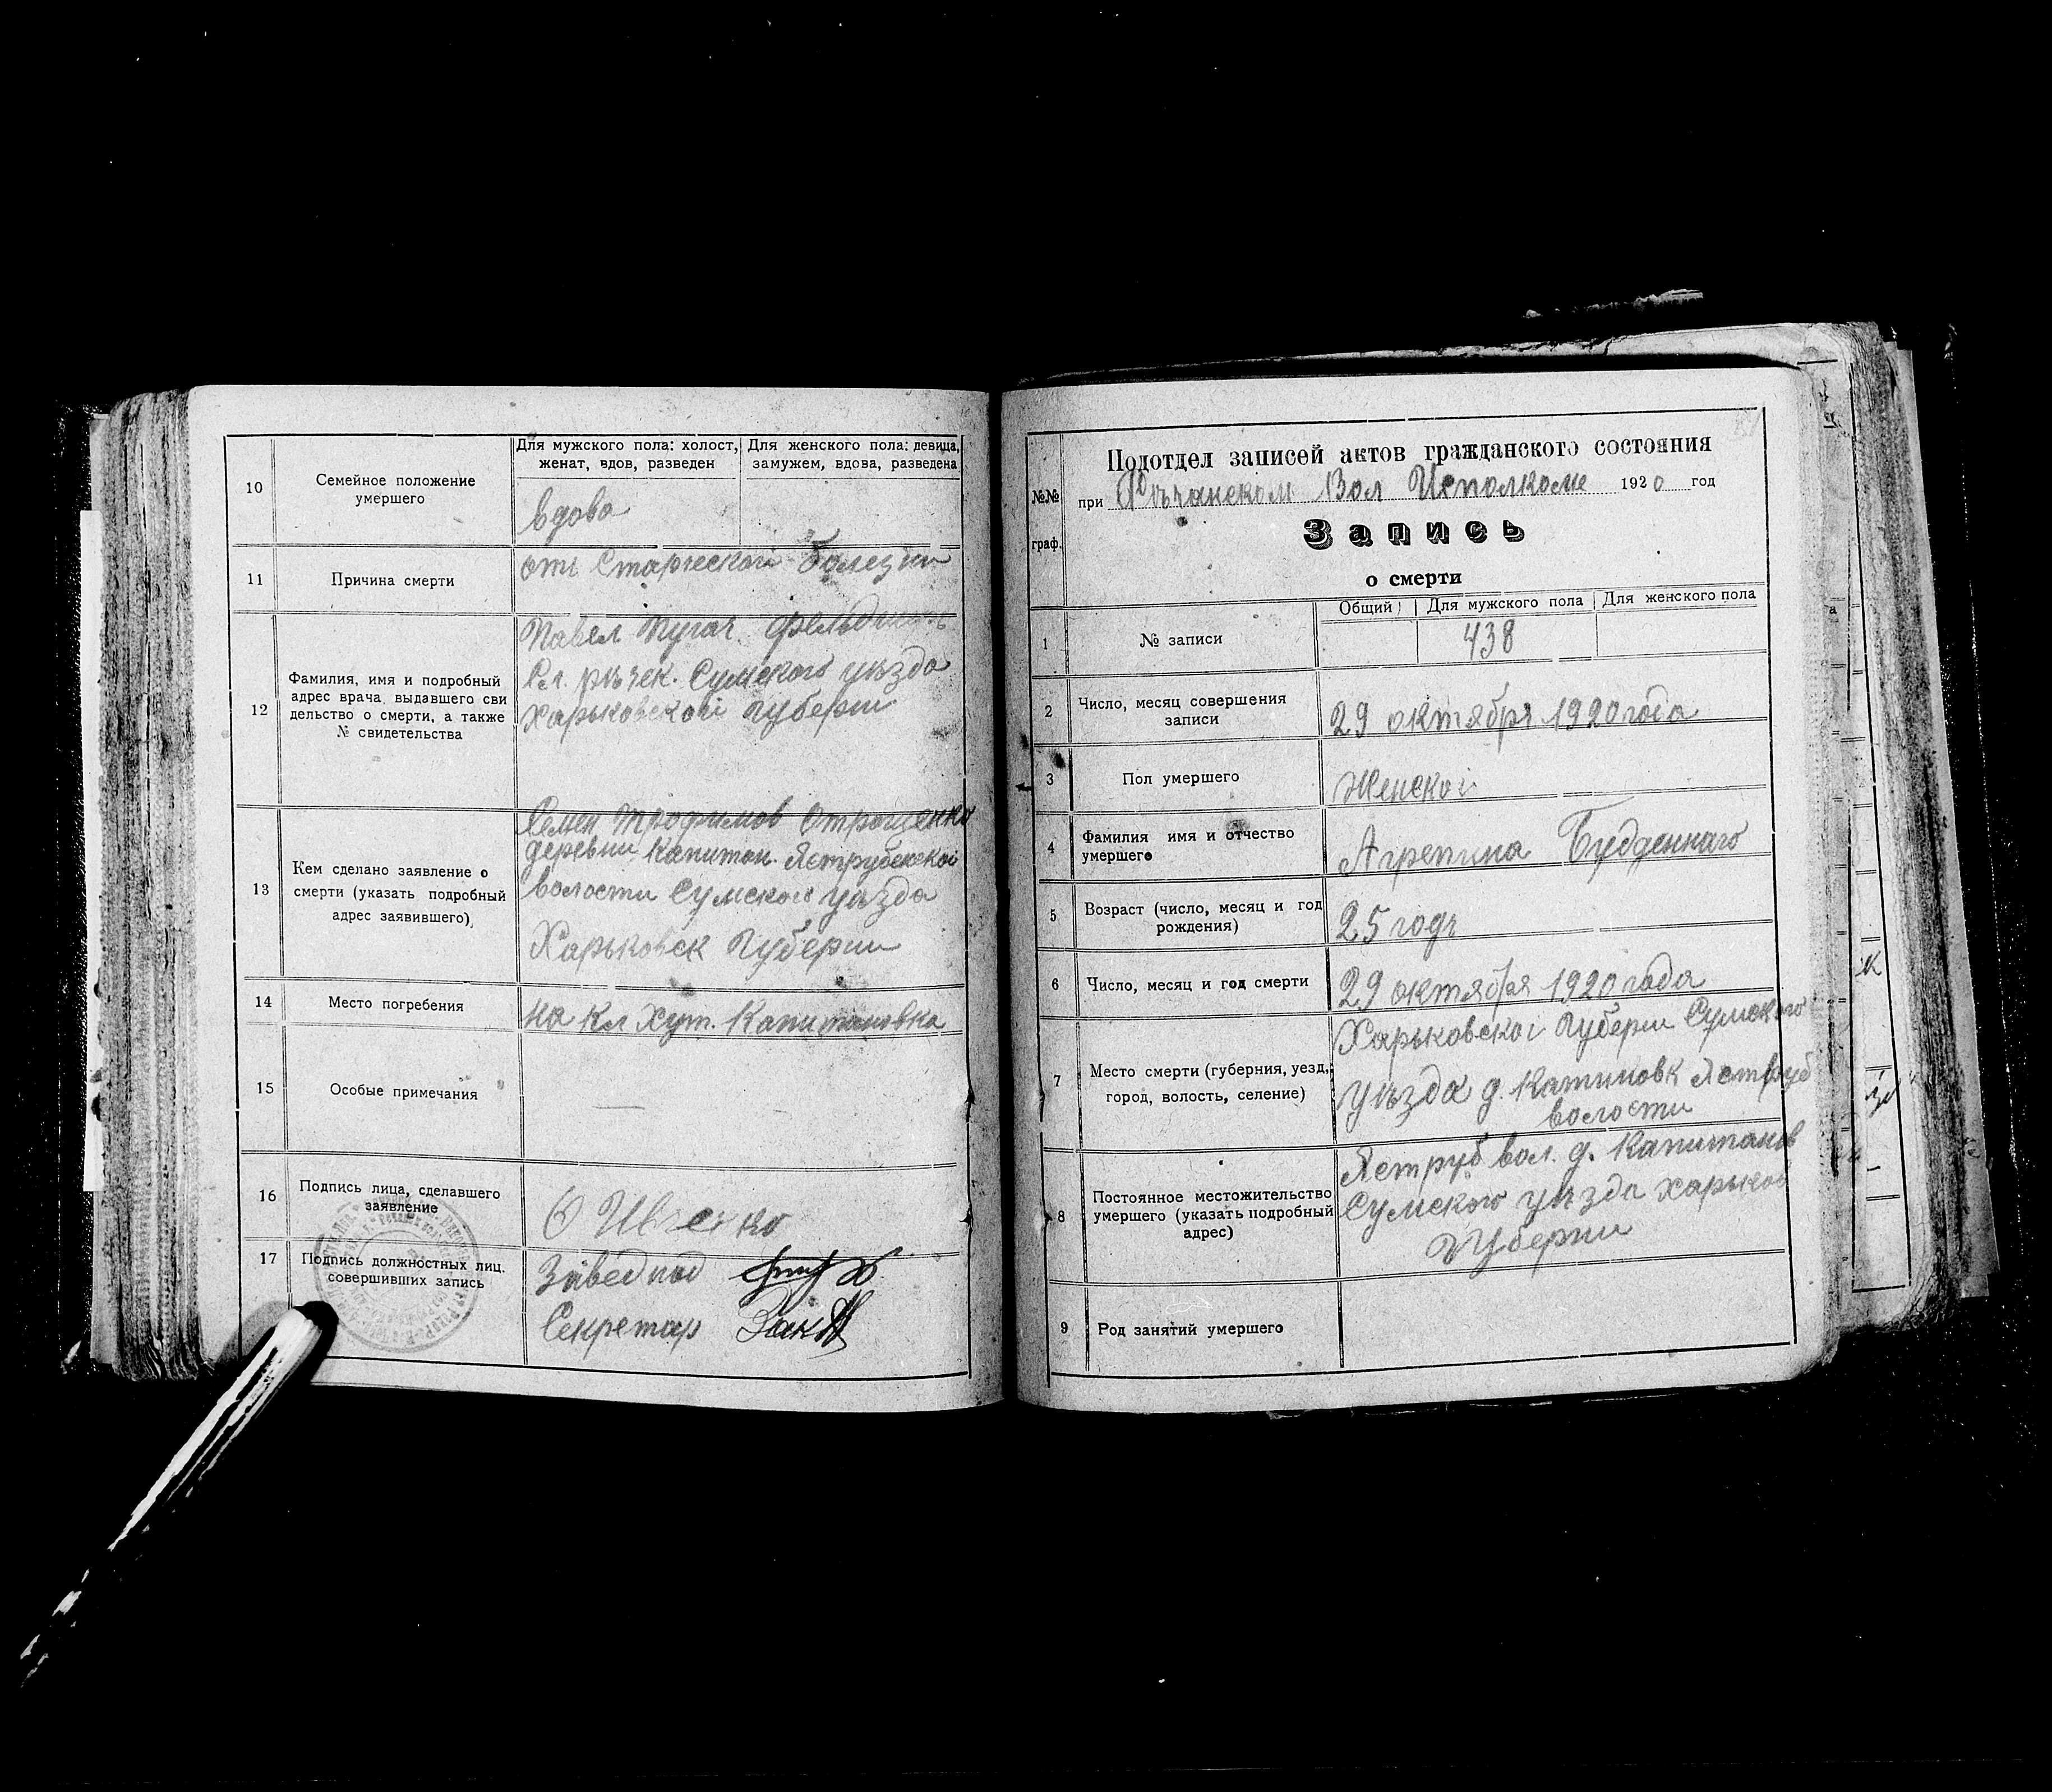 10
Семейное положение
умершего
Для мужского пола: холост,
женат, вдов, разведен
Для женского пола: девица,
замужем, вдова, разведена
вдова
11
Причина смерти
отъ Старческой Болезни
12
Фамилия, имя и подробный
адрес врача, выдавшего сви
дельство о смерти, а также
№ свидетельства
Павел Пугач.
Сл. рѣчек. Сумского уѣзда
Харьковской Губерни
13
Кем сделано заявление о
смерти (указать подробный
адрес заявившего)
Семен Трофимов Отрощенко
деревни Капитан. Яструбенской
волости Сумского уезда
Харьковск Губерни
14
Место погребения
на Кл Хут. Капитановка
15
Особые примечания
16
Подпись лица, сделавшего
заявление
17
Подпись должностных лиц.
совершивших запись
Завед под
Секретар
№№
граф.
Подотдел записей актов гражданского состояния
при Рѣчанском Вол Исполкоме 1920 год
Запись
о смерти
Общий
Для мужского пола
Для женского пола
1
№ записи
438
2
Число, месяц совершения
записи
29 октября 1920 года
3
Пол умершего
Женской
4
Фамилия имя и отчество
умершего
Агрепина Будденнаго
5
Возраст (число, месяц и год
рождения)
25 годъ
6
Число, месяц и год смерти
29 октября 1920 года
7
Место смерти (губерния, уезд,
город, волость, селение)
Харьковской Губерни Сумского
уѣзда д. Капиновк Яструб
волости
8
Постоянное местожительство
умершего (указать подробный
адрес)
Яструб вол. д. Капитанов
Сумского уѣзда Харьков
Губерни
9
Род занятий умершего